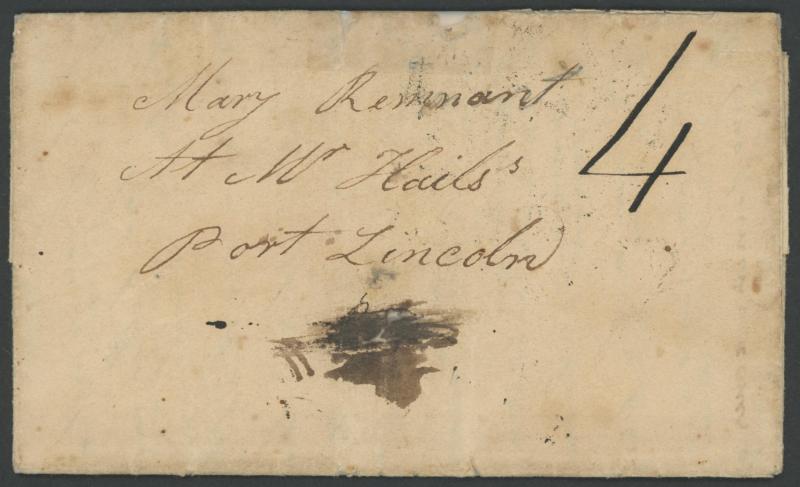 Mary Remnant
4
At Mr Hails's
Port Lincoln